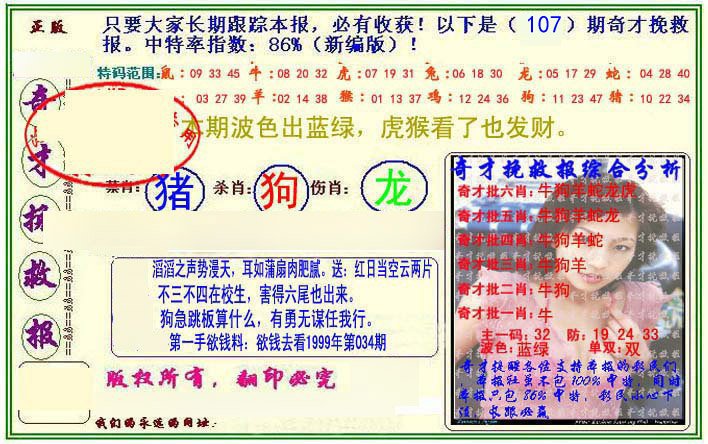 正版
只要大家长期跟踪本报，必有收获！以下是（107）期奇才挽救
报。中特率指数：86%（新编版）！
特码范围：鼠：09 33 45 牛：08 20 32 虎：07 19 31 兔：06 18 30 龙：05 17 29 蛇：04 28 40
03 27 39 羊：02 14 38 猴：01 13 37 鸡：12 24 36 狗：11 23 47 猪：10 22 34
本期波色出蓝绿，虎猴看了也发财。
奇
才
挽
救
报
猪 杀肖：狗 伤肖：龙
滔滔之声势漫天，耳如蒲扇肉肥腻。送：红日当空云两片
不三不四在校生，害得六尾也出来。
狗急跳板算什么，有勇无谋任我行。
第一手欲钱料：欲钱去看1999年第034期
版权所有，翻印必究
我们的永远的网址：
奇才挽救报综合分析
奇才批六肖：牛狗羊蛇龙虎
奇才批五肖：牛狗羊蛇龙
奇才批四肖：牛狗羊蛇
奇才批三肖：牛狗羊
奇才批二肖：牛狗
奇才批一肖：牛
主一码：32 防：19 24 33
波色：蓝绿 单双：双
奇才提醒各位支持本报的彩民们
，本报社虽不包100%中特，同时
本报只包86%中特，彩民小心下
注，长跟必赢